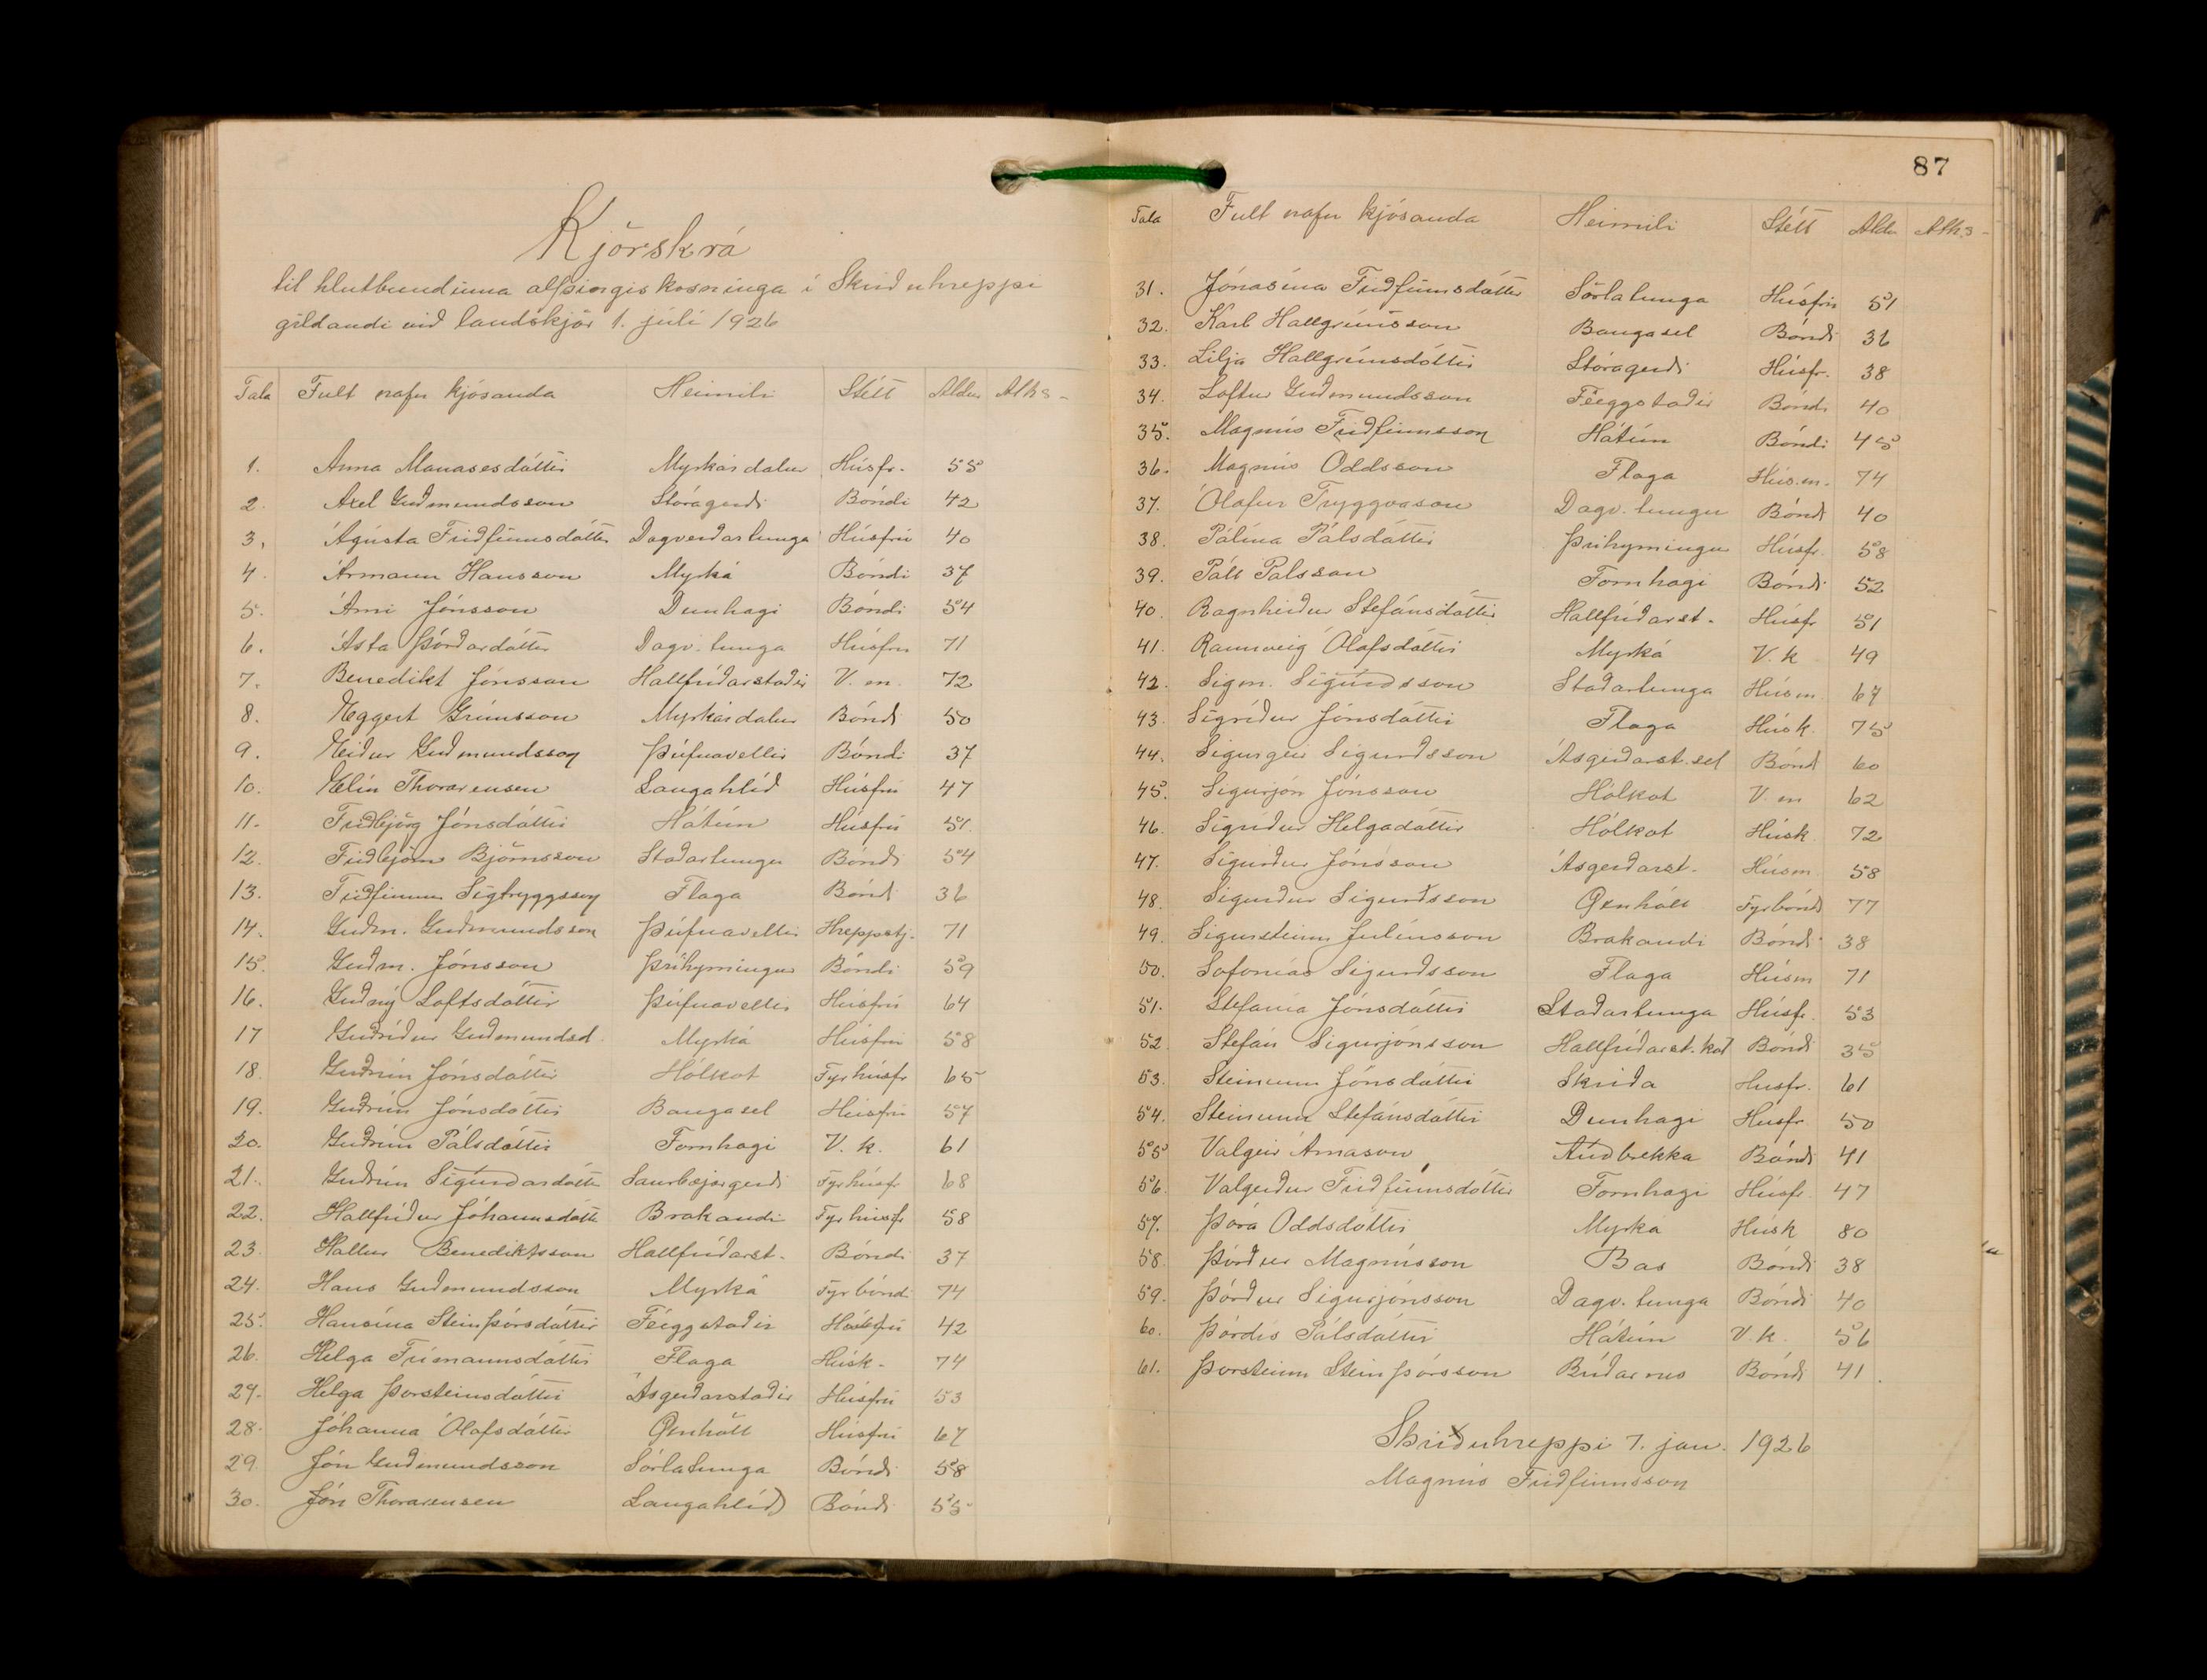 Kjörskrá
til hlutbundinna alþingiskosninga í Skriðuhreppi
gildandi við landskjör 1. júlí 1926
Tala Fult nafn kjósanda Heimili Stétt Aldur Aths-
1. Anna Manasesdóttir Myrkárdalur Húsfr. 55
2. Axel Guðmundsson Stóragerði Bóndi 42
3. Ágústa Friðfinnsdóttir Dagverðartunga Húsfrú 40
4. Ármann Hansson Myrká Bóndi 37
5. Árni Jónsson Dunhagi Bóndi 54
6. Ásta Þórðardóttir Dagv. tunga Húsfrú 71
7. Benedikt Jónsson Hallfríðarstaðir V. m. 72
8. Eggert Grímsson Myrkárdalur Bóndi 50
9. Eiður Guðmundsson Þúfnavellir Bóndi 37
10. Elín Thorarensen Langahlíð Húsfrú 47
11. Friðbjörg Jónsdóttir Hátún Húsfrú 51.
12. Friðbjörn Björnsson Staðartunga Bóndi 54
13. Friðfinnur Sigtryggsson Flaga Bóndi 36
14. Guðm. Guðmundsson Þúfnavellir Hreppstj. 71
15. Guðm. Jónsson Þríhyrningur Bóndi 59
16. Guðný Loftsdóttir Þúfnavellir Húsfrú 64
17 Guðríður Guðmundsd. Myrká Húsfrú 58
18. Guðrún Jónsdóttir Hólkot Fyr húsfr 65
19. Guðrún Jónsdóttir Baugasel Húsfrú 57
20. Guðrún Pálsdóttir Fornhagi V. k. 61
21. Guðrún Sigurðardóttir Saurbæjargerði Fyr húsfr 68
22. Hallfríður Jóhannsdóttir Brakandi Fyr húsfr 58
23. Hallur Benediktsson Hallfríðarst. Bóndi 37
24. Hans Guðmundsson Myrká Fyr bóndi 74
25. Hansína Steinþórsdóttir Féeggstaðir Húsfrú 42
26. Helga Frímannsdóttir Flaga Húsk. 74
27. Helga Þorsteinsdóttir Ásgerðarstaðir Húsfrú 53
28. Jóhanna Ólafsdóttir Öxnhóll Húsfrú 67
29. Jón Guðmundsson Sörlatunga Bóndi 58
30. Jón Thorarensen Langahlíð Bóndi 55
87
Tala Fult nafn kjósanda Heimili Stétt Aldur Aths-
31. Jónasína Friðfinnsdóttir Sörlatunga Húsfrú 51
32. Karl Hallgrímsson Baugasel Bóndi 36
33. Lilja Hallgrímsdóttir Stóragerði Húsfr. 38
34. Loftur Guðmundsson Féeggstaðir Bóndi 40
35. Magnús Friðfinnsson Hátún Bóndi 45
36. Magnús Oddsson Flaga Hús.m. 74
37. Ólafur Tryggvason Dagv. tunga Bóndi 40
38. Pálína Pálsdóttir Þríhyrningur Húsfr. 58
39. Páll Pálsson Fornhagi Bóndi 52
40. Ragnheiður Stefánsdóttir Hallfríðarst. Húsfr 51
41. Rannveig Ólafsdóttir Myrká V. k 49
42. Sigm. Sigurðsson Staðartunga Húsm 67
43. Sigríður Jónsdóttir Flaga Húsk. 75
44. Sigurgeir Sigurðsson Ásgerðarst. sel Bóndi 60
45. Sigurjón Jónsson Hólkot V. m 62
46. Sigríður Helgadóttir Hólkot Húsk 72
47. Sigurður Jónsson Ásgerðarst. Húsm 58
48. Sigurður Sigurðsson Öxnhóll Fyrbóndi 77
49. Sigursteinn Júlíusson Brakandi Bóndi 38
50. Sofonías Sigurðsson Flaga Húsm 71
51. Stefanía Jónsdóttir Staðartunga Húsfr. 53
52. Stefán Sigurjónsson Hallfríðarst.kot Bóndi 35
53. Steinunn Jónsdóttir Skriða Húsfr. 61
54. Steinunn Stefánsdóttir Dunhagi Húsfr. 50
55 Valgeir Árnason Auðbrekka Bóndi 41
56. Valgerður Friðfinnsdóttir Fornhagi Húsfr. 47
57. Þóra Oddsdóttir Myrká Húsk 80
58. Þórður Magnússon Bás Bóndi 38
59. Þórður Sigurjónsson Dagv. tunga Bóndi 40
60. Þórdís Pálsdóttir Hátún V.k. 56
61. Þorsteinn Steinþórsson Búðarnes Bóndi 41.
Skriðuhreppi 7. jan. 1926
Magnús Friðfinnsson